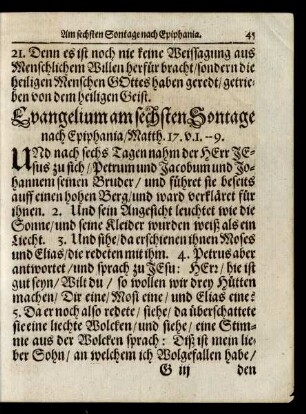 Am sechsten Sontage nach Epiphania. 45
21. Denn es ist noch nie keine Weissagung aus
Menschlichem Willen herfür bracht/sondern die
heiligen Menschen GOttes haben geredt/getrie-
ben von dem heiligen Geist.
Evangelium am sechsten Sontage
nach Epiphania/Matth. 17. v.1.--9.
UNd nach sechs Tagen nahm der HErr JE-
sus zu sich/Petrum und Jacobum und Jo-
hannem seinen Bruder/ und führet sie beseits
auff einen hohen Berg/und ward verkläret für
ihnen. 2. Und sein Angesicht leuchtet wie die
Sonne/und seine Kleider wurden weiß als ein
Liecht. 3. Und sihe/da erschienen ihnen Moses
und Elias/die redeten mit ihm. 4. Petrus aber
antwortet/und sprach zu JEsu: HErr/hie ist
gut seyn/Wilt du/ so wollen wir drey Hütten
machen/Dir eine/Mosi eine/ und Elias eine?
5. Da er noch also redete/ siehe/da überschattete
sie eine liechte Wolcken/und siehe/ eine Stim-
me aus der Wolcken sprach: Diß ist mein lie-
ber Sohn/ an welchem ich Wolgefallen habe/
G iij den